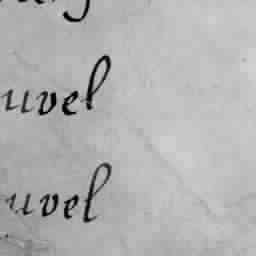 uvel
uvel